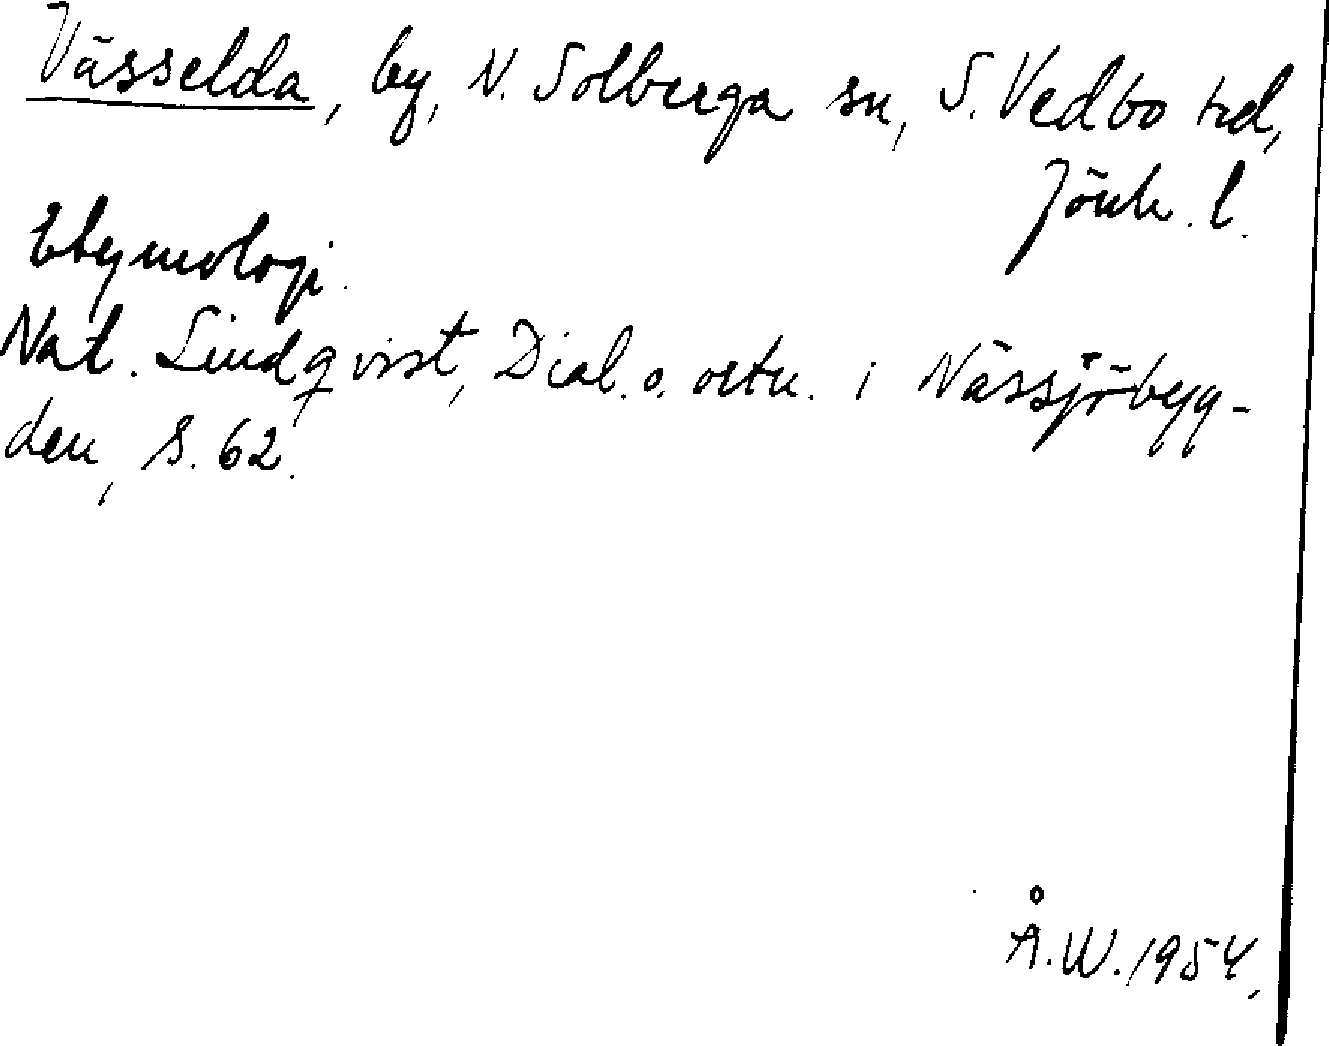 Vässelda, by, N. Solberga sn, S. Vedbo hd,
Jönk. l.
Etymologi.
Nat. Lindqvist, Dial. o. ortn. i Nässjöbyg-
den, s. 62.
Å. W. 1954.